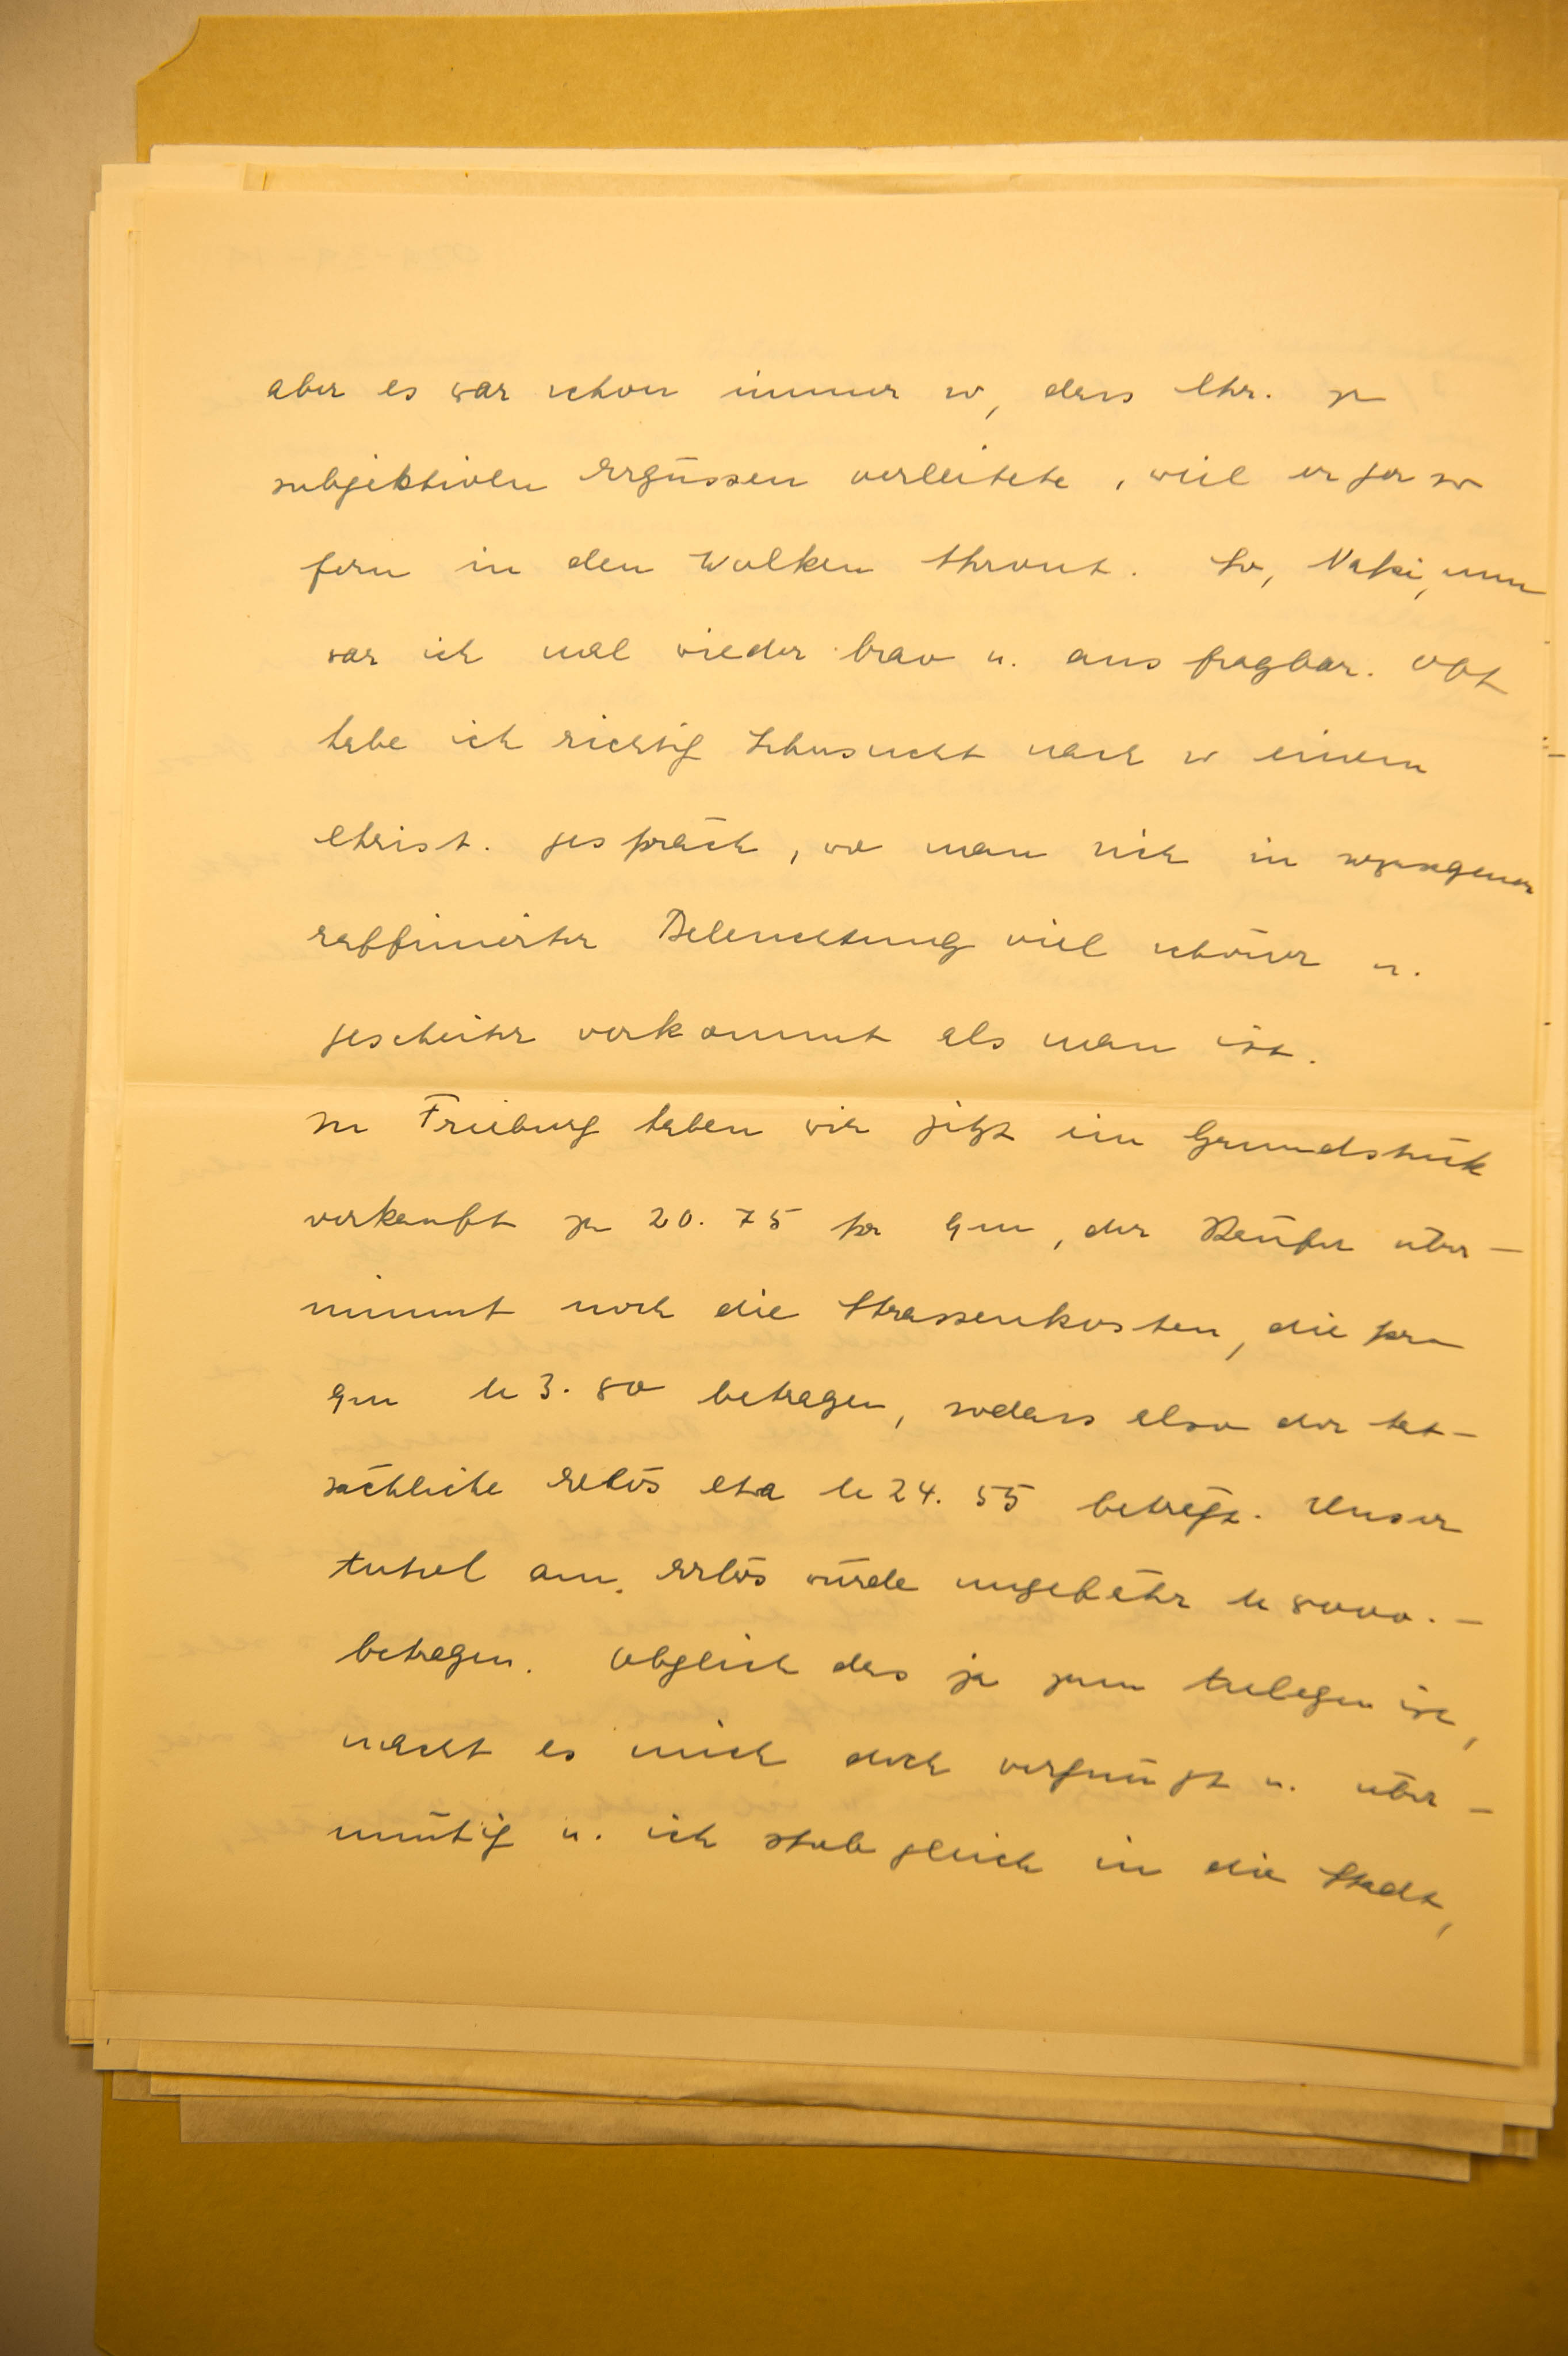 aber es war schon immer so, dass Chr. zu
subjektiven Ergüssen verleitete, weil er gar so
fern in den Wolken thront. So, nun
war ich mal wieder brav u. ausfragbar. Oft
habe ich richtig Sehnsucht nach so einem
Christ. gespräch, wo man sich in sozusagener
raffinierter Beleuchtung viel schöner u.
gescheiter vorkommt als man ist.
In Freiburg haben wir jetzt ein Grundstück
verkauft zu 20.75 pro qm, der Käufer über-
nimmt noch die Strassenkosten, die pro
qm M 3.80 betragen, sodass also der tat-
sächliche Erlös etwa M 24.55 beträgt. Unser
Anteil am Erlös würde ungefähr M 8000.-
betragen. Obgleich das ja zum Anlegen ist,
macht es mich doch vergnügt u. über-
mütig u. ich stob gleich in die Stadt,